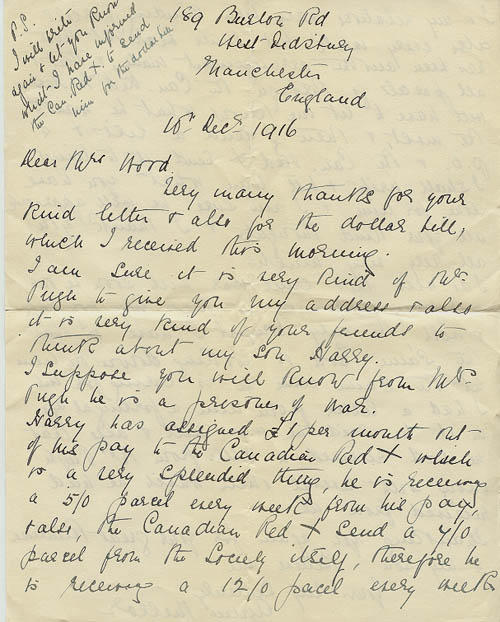 P.S.
I will write
again & let you know
what I have informed
the Can Red X to send
him for the dollar bill
189 Burton Rd
West Didsbury
Manchester
England
10th Decr 1916
Dear Mrs Wood
Very many thanks for your
kind letter & also for the dollar bill,
which I received this morning.
I am sure it is very kind of Mrs
Pugh to give you my address & also
it is very kind of your friends to
think about my son Harry.
I suppose you will know from Mrs
Pugh he is a prisoner of war.
Harry has assigned £1 per month out
of his pay to the Canadian Red X which
is a very splendid thing, he is receiving
a 5/0 parcel every week from his pay,
& also, the Canadian Red X send a 7/0
parcel from the Society itself, therefore he
is receiving a 12/0 parcel every week